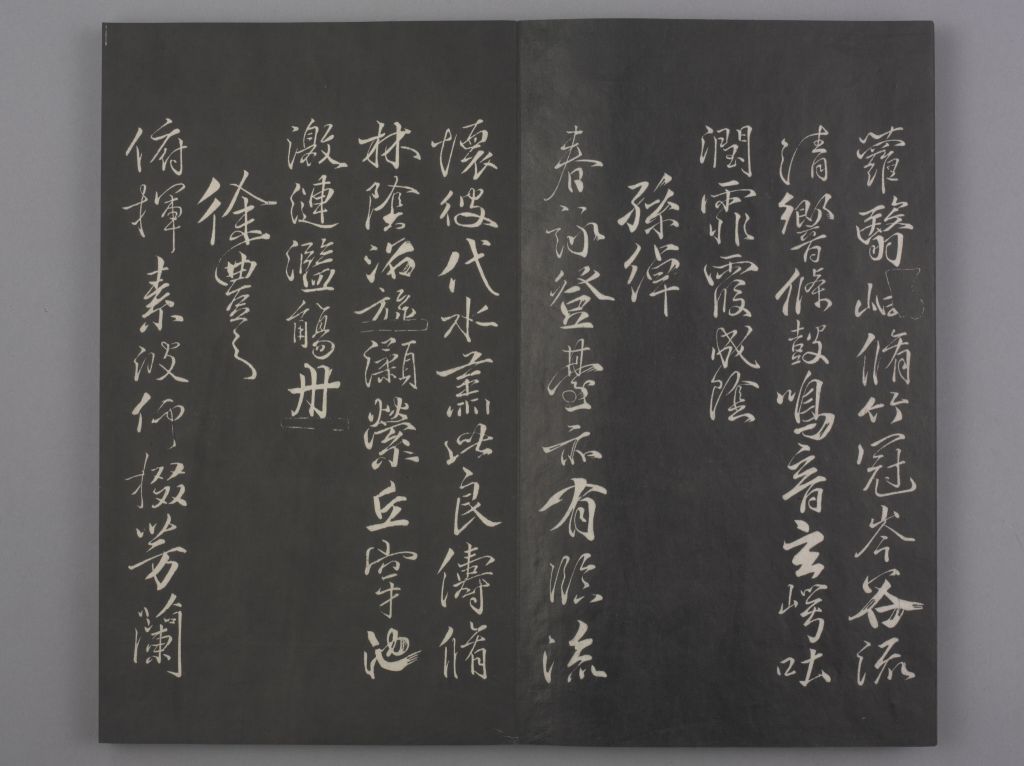 蘿翳岫脩竹冠岑谷流
清響條鼓鳴音玄崿吐
潤霏霞成陰
孫綽
春詠登臺亦有臨流
懷彼代水肅此良儔脩
林陰沼旋瀨縈丘穿池
激漣濫觴舟
徐豐之
俯揮素波仰掇芳蘭